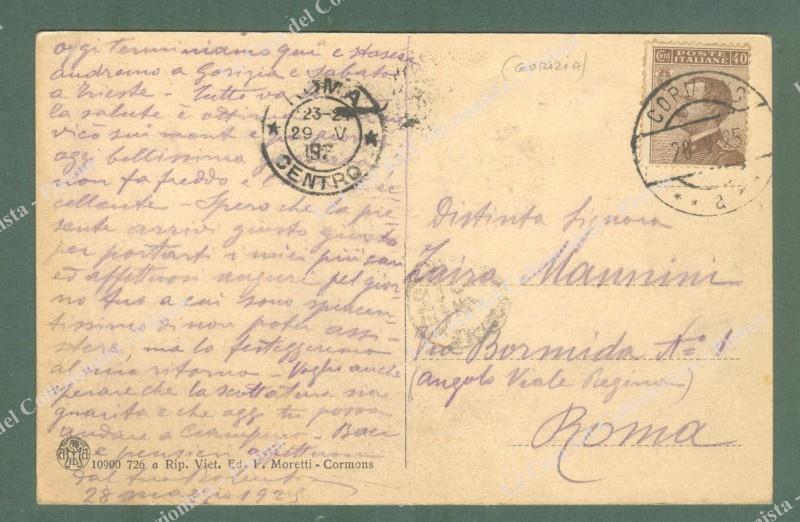 oggi terminiamo qui e stasera
andremo a Gorizia e Sabato
a Trieste - Tutto va
la salute è
sui monti e
oggi bellissima
non fa freddo e
cellente - Spero che la pre-
sente arrivi giusto giusto
per portarti i miei più cari
ed affettuosi auguri pel gior-
no tuo a cui sono spiacen-
tissimo di non poter assi-
stere, ma lo festeggeremo
al mio ritorno - Voglio anche
sperare che la scottatura sia
guarita e che oggi tu possa
andare a Ciampino - Baci
e pensieri affettuosi
dal tuo
28 maggio 1925
10900 726 a Rip. Viet. Ed. P. Moretti - Cormons
ROMA
23-2
29 V
192
CENTRO
(GORIZIA)
POSTE
ITALIANE
Cent 40
CORMONS
28 25
a
Distinta Signora
Zaira Mannini
Via Bormida No. 1
(Angolo Viale Regina)
Roma